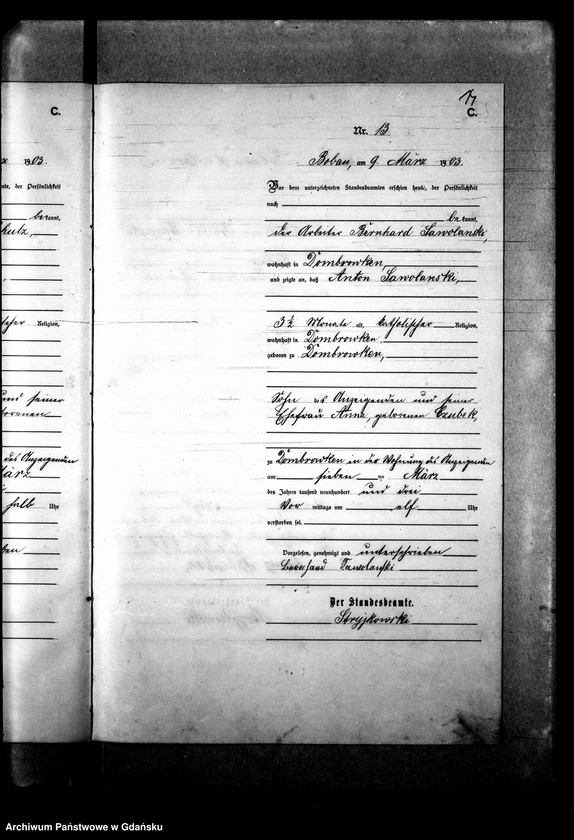 17
C.
C.
Nr. 13.
1903.
Bobau, am 9 März 1903.
nte, der Persönlichkeit
Vor dem unterzeichneten Standesbeamten erschien heute, der Persönlichkeit
nach
be kannt,
be kannt,
der Arbeiter Bernhard Sawolanski,
wohnhaft in Dombrowken,
und zeigte an, daß Anton Sawolanski,
Religion,
3½ Monate alt, katholischer Religion,
wohnhaft in Dombrowken,
geboren zu Dombrowken,
und seiner
Sohn des Anzeigenden und seiner
Ehefrau Anna geborenen Czubek,
des Anzeigenden
zu Dombrowken in der Wohnung des Anzeigenden
am sieben ten März
des Jahres tausend neunhundert und drei
halb Uhr
Vor mittags um elf Uhr
verstorben sei.
Vorgelesen, genehmigt und unterschrieben
Bernhard Sawolanski
Der Standesbeamte.
Stryjkowski
Archiwum Państwowe w Gdańsku